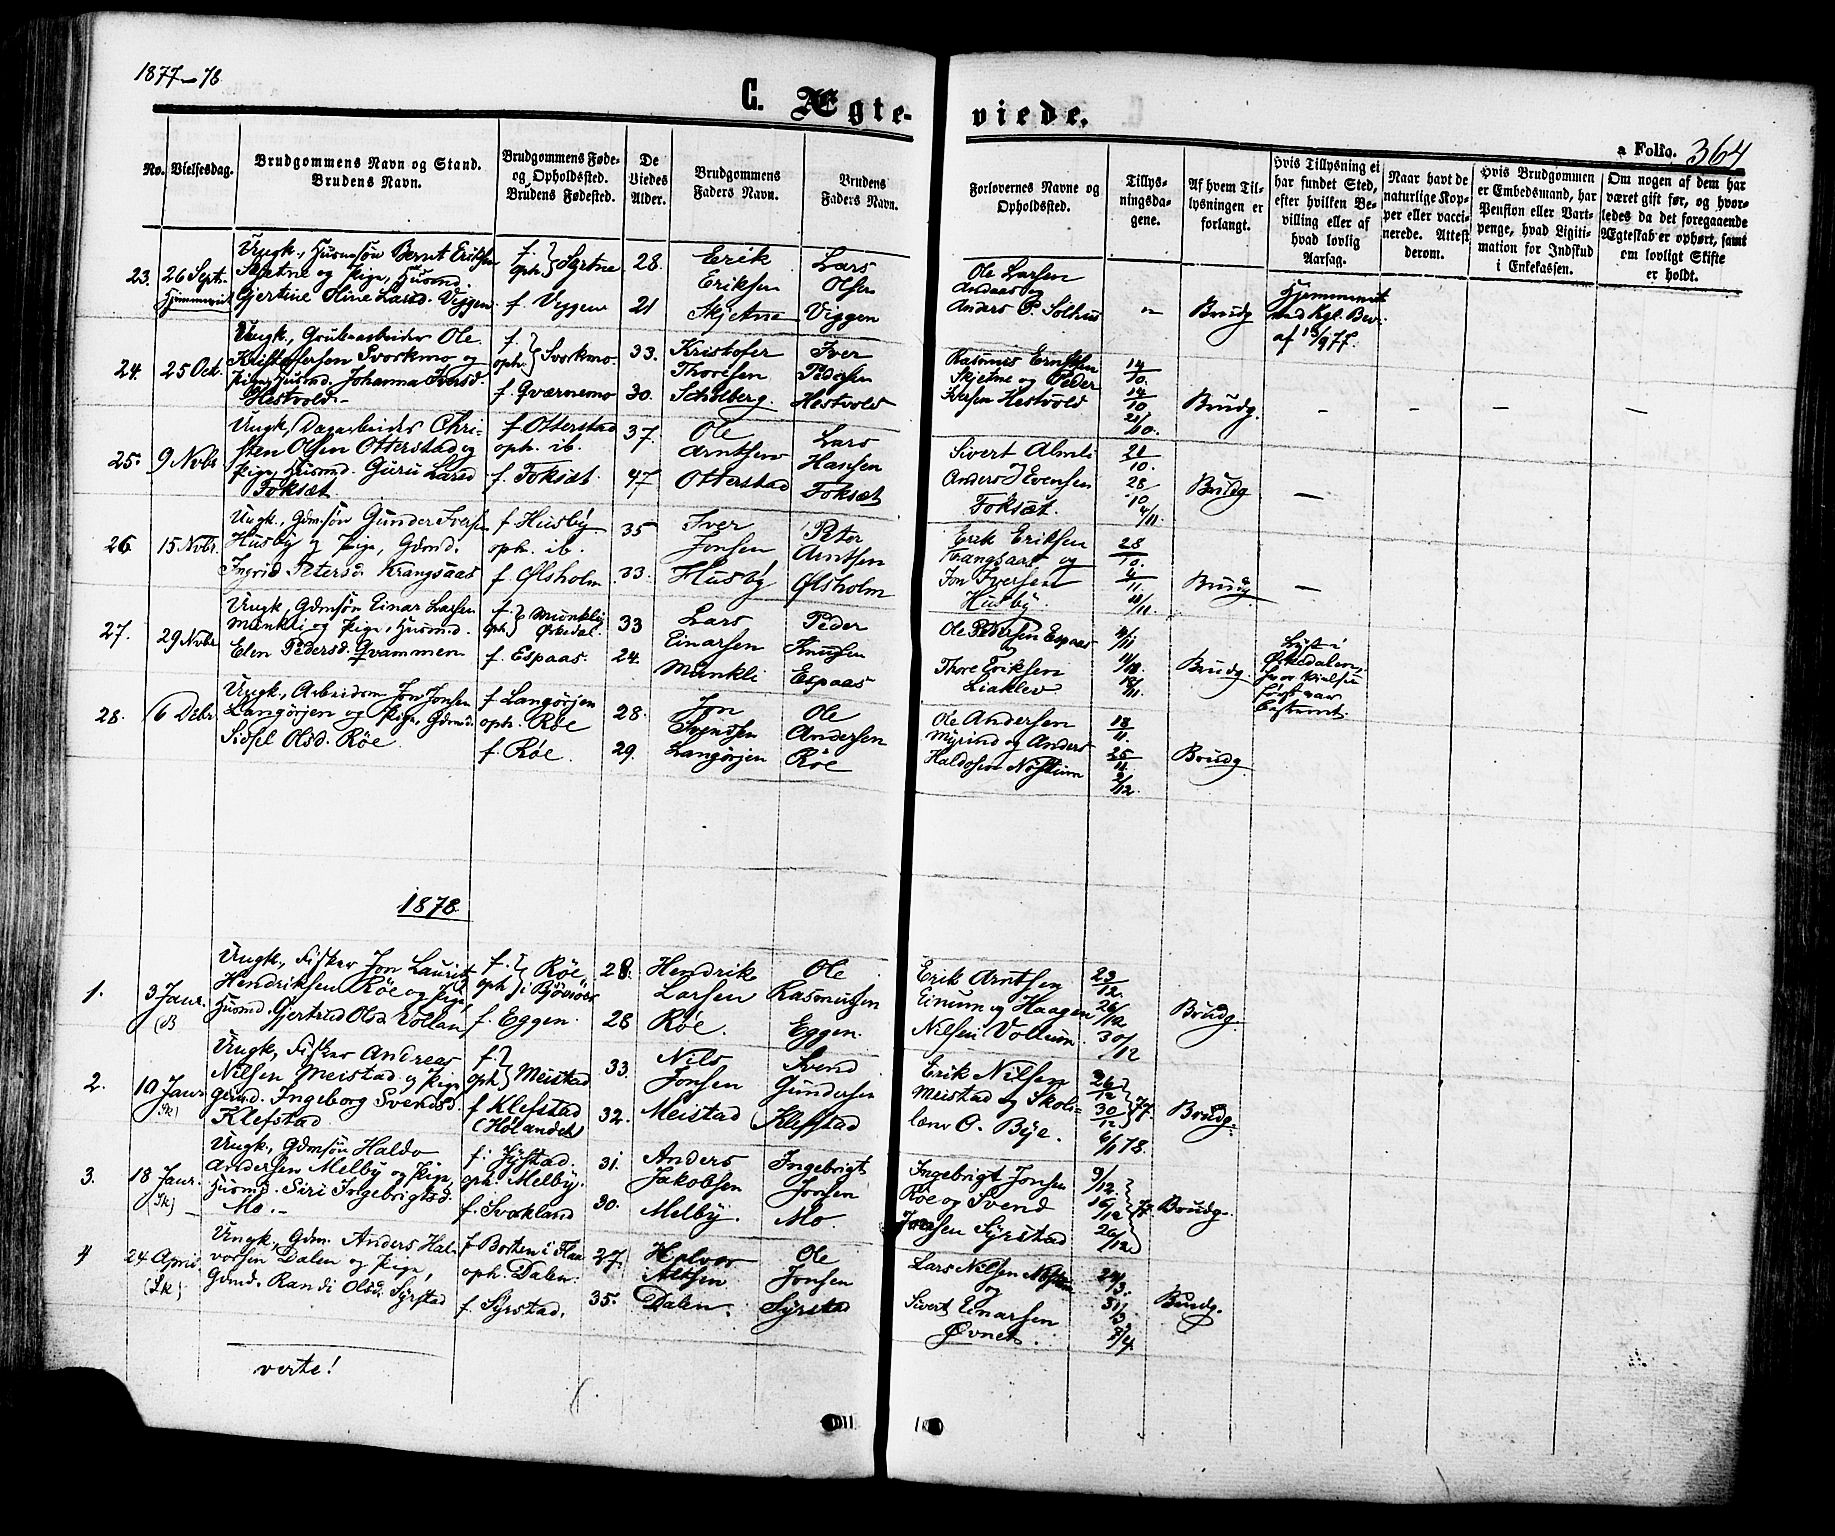 1877-78
C. Ægteviede.
a Folio. 364
No.
Vielsesdag.
Brudgommens Navn og Stand.
Brudens Navn.
Brudgommens Føde-
og Opholdsted.
Brudens Fødested.
De
Viedes
Alder.
Brudgommens
Faders Navn.
Brudens
Faders Navn.
Forlovernes Navne og
Opholdsted.
Tillys-
ningsda-
gene.
Af hvem Til-
lysningen er
forlangt.
Hvis Tillysning ei
har fundet Sted,
efter hvilken Be-
villing eller af
hvad lovlig
Aarsag.
Naar havt de
naturlige Kop-
per eller vacci-
nerede. Attest
derom.
Hvis Brudgommen
er Embedsmand, har
Pension eller Vart-
penge, hvad Ligiti-
mation for Indskud
i Enkekassen.
Om nogen af dem har
været gift før, og hvor-
ledes da det foregaaende
Ægteskab er ophørt, samt
om lovligt Skifte
er holdt.
23. 26 Sept.
Hjemmeviet
Ungk., Husmsøn Bernt Eriksen
Skjetne og Pige, Husmd.
Gjertine Stine Larsd. Viggen
f. oph. } Skjetne
f. Viggen
28.
21
Erik
Eriksen
Skjetne
Lars
Olsen
Viggen
Ole Larsen
Anders P. Solhus
"
Brudg
Hjemmeviet
med Kgl. Bev.
af 13/9 77.
24. 25 Oct.
Ungk., Grubearbeider Ole
Kristofersen Svorkmo og
Pige, Husmd. Johanna Iversd.
Hestvold.-
f. oph. } Svorkmo
f. Gværnemo
33.
30.
Kristofer
Thoresen
Scholberg.
Iver
Pedersen
Hestvold
Rasmus Erntsen
Skjetne og Peder
Iversen Hestvold
14/10.
14/10
21/10.
Brudg.
- - - -
25. 9 Novbr
Ungk., Dagarbeider Chri-
sten Olsen Otterstad og
Pige, Husmd. Guru Larsd
Foksæt
f Otterstad
oph. ib.
f. Foksæt
37.
47
Ole
Arntsen
Otterstad
Lars
Hansen
Foksæt
Sivert Almli
Anders J Evensen
Foksæt.
21/10.
28/10
4/11.
Brudg
-
26 15 Novbr.
Ungk., Gdmsøn Gunder Iversen
Husby og Pige, Gdmd.
Ingrid Petersd. Krangsaas
f Husby
oph. ib.
f Ølsholm
35
33.
Iver
Jonsen
Husby
Peter
Arntsen
Ølsholm
Erik Eriksen
Krangsaas og
Jon Iversen
Husby.
28/10.
4/11.
11/11
Brudg
-
27. 29 Novbr
Ungk., Gdmsøn Einar Larsen
Munkli og Pige, Husmd.
Elen Pedersd. Qvammen
f. oph } Munkli, Ørkedal.
f. Espaas.
33
24.
Lars
Einarsen
Munkli
Peder
Knudsen
Espaas
Ole Pedersen Espaas
Thore Eriksen
Liaklev
4/11
11/11
18/11.
Brudg
Lyst i
Ørkedalen,
hvor Vielsen
først var
bestemt.
28. 6 Debr.
Ungk., Arbeidsm Jon Jonsen
Langørjen og Pige, Gdmd.
Sidsel Olsd. Røe.
f Langørjen
oph. Røe
f Røe.
28.
29.
Jon
Svendsen
Langørjen
Ole
Andersen
Røe
Ole Andersen
Myrind og Anders
Haldosen Nøstum
18/11.
25/11
2/12.
Brudg
1878
1. 3 Janr.
Ungk., Fisker Jon Laurits
Hendriksen Røe og Pige,
Husmd. Gjertrud Olsd. Vollan
f. } Røe
oph } i Bjørnør
f. Eggen.
28.
28
Hendrik
Larsen
Røe.
Ole
Rasmussen
Eggen.
Erik Arntsen
Einum og Haagen
Nilsen Vollum.
23/12.
26/12
30/12
Brudg.
2. 10 Janr.
(Sk)
Ungk., Fisker Andreas
Nilsen Meistad og Pige
Gdmd. Ingeborg Svendsd.
Klefstad
f. oph } Meistad
f Klefstad
(Hølandet)
33.
32.
Nils
Jonsen
Meistad
Svend
Gundersen
Klefstad
Erik Nilsen
Meistad og Skole-
lærer O. Bye.
26/12
30/12 } 77.
6/1 78.
Brudg.
3. 18 Janr.
(Sk)
Ungk., Gdmsøn Haldo
Andersen Melby og Pige,
Husmd. Siri Ingebrigtsd.
Mo.-
f. Systad.
oph. Melby.
f. Svorkland
31.
30.
Anders
Jakobsen
Melby.
Ingebrigt
Jonsen
Mo.
Ingebrigt Jonsen
Røe og Svend
Jonsen Syrstad
9/12.
16/12 } 77
26/12
Brudg.
4 24 April
(Sk)
Ungk., Gdm. Anders Hal-
vorsen Dalen og Pige,
Gdmd. Randi Olsd. Syrstad
f. Borten i Flaa
oph. Dalen.
f. Syrstad.
27.
35.
Halvor
Dalen.
Ole
Jonsen
Syrstad
Lars Nilsen
og
Sivert Einarsen
Øvnet.
24/3.
31/3
7/4.
Brudg.
verte!